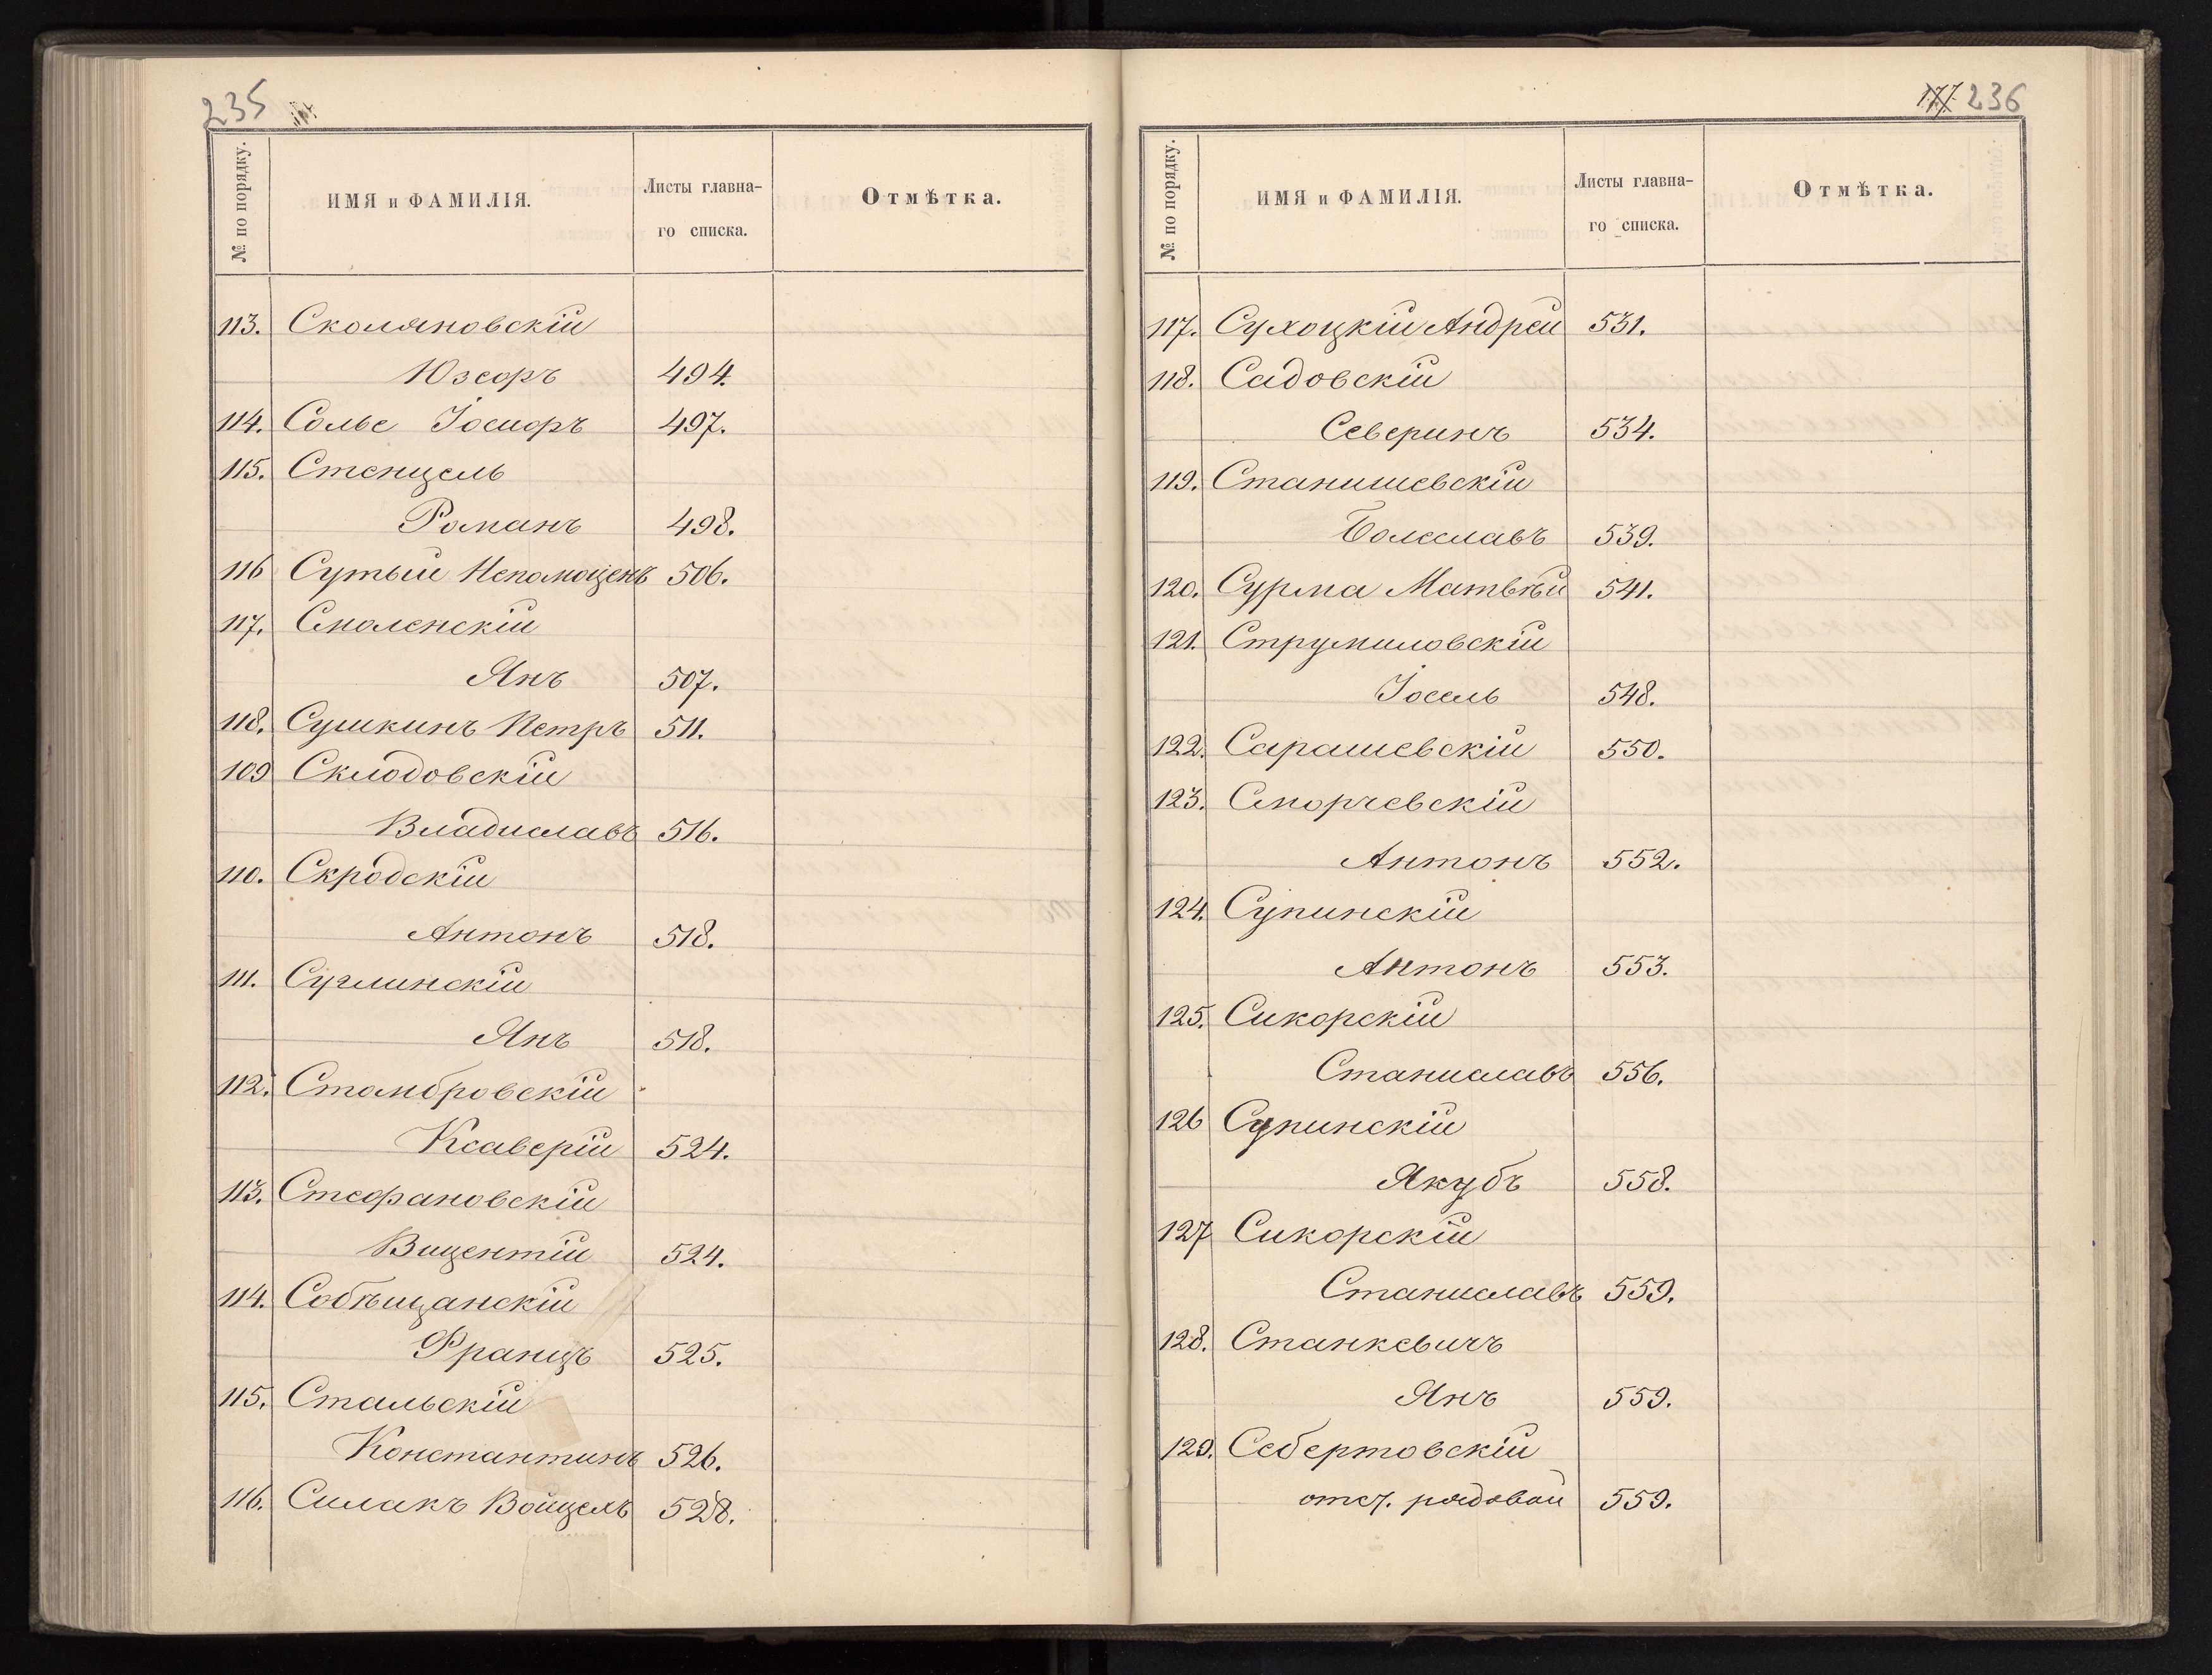 235
№ по порядку.
ИМЯ и ФАМИЛІЯ.
Листы главна-
го списка.
Отмѣтка.
113. Сколяновскій
Юзефъ 494.
114. Солье Іосифъ 497.
115. Стенцель
Романъ 498.
116 Сутый Непомуценъ 506.
117. Смоленскій
Янъ 507.
118. Сушкинъ Петръ 511.
109 Склодовскій
Владиславъ 516.
110. Скродскій
Антонъ 518.
111. Суглинскій
Янъ 518.
112. Стамбровскій
Ксаверій 524.
113. Стефановскій
Вицентій 524.
114. Собѣщанскій
Францъ 525.
115. Стальскій
Константинъ 526.
116. Силакъ Войцехъ 528.
177 236
№ по порядку.
ИМЯ и ФАМИЛІЯ.
Листы главна-
го списка.
Отмѣтка.
117. Сухоцкій Андрей 531.
118. Садовскій
Северинъ 534.
119. Станишевскій
Болеславъ 539.
120. Сурма Матвѣй 541.
121. Струмиловскій
Іосель 548.
122. Сарашевскій 550.
123. Сморчевскій
Антонъ 552.
124. Супинскій
Антонъ 553.
125. Сикорскій
Станиславъ 556.
126 Супинскій
Якубъ 558.
127 Сикорскій
Станиславъ 559.
128. Станкевичъ
Янъ 559.
129. Себертовскій
отст. рядовой 559.